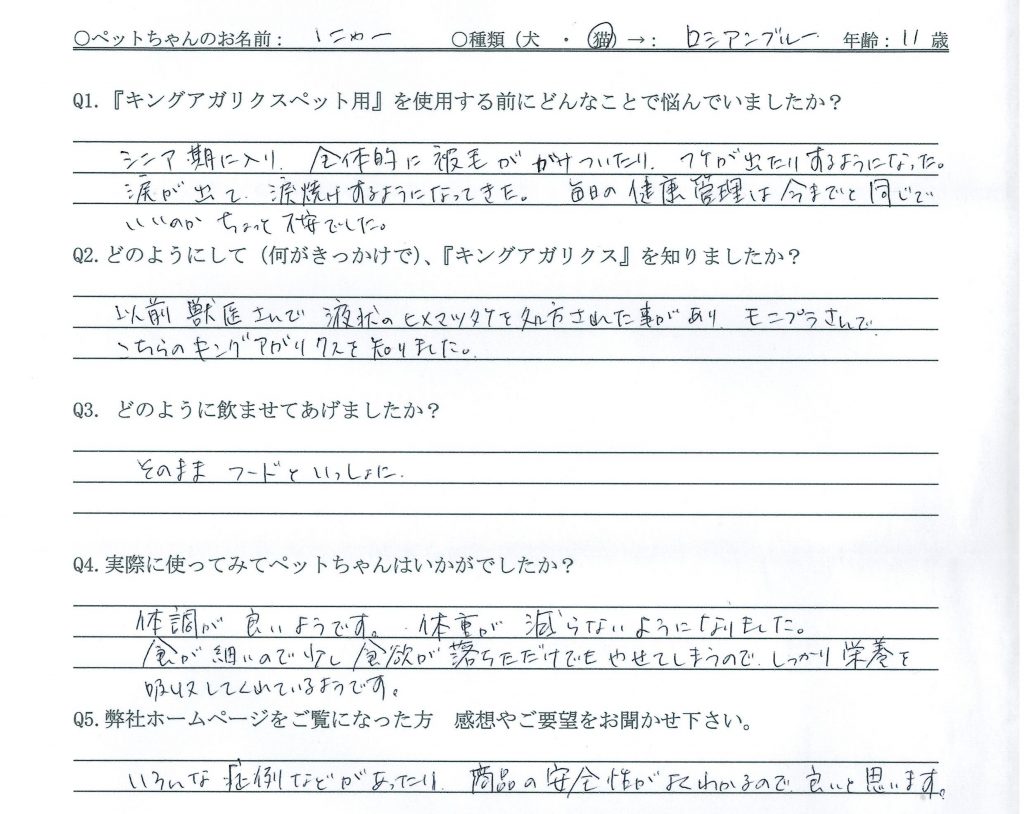 ○ペットちゃんのお名前： にゃー ○種類（犬 ・ 猫）→： ロシアンブルー 年齢：11歳
Q1.『キングアガリクスペット用』を使用する前にどんなことで悩んでいましたか？
シニア期に入り、全体的に被毛ががけついたり、フケが出たりするようになった。
涙が出て、涙焼けするようになってきた。 毎日の健康管理は今までと同じで
いいのか ちょっと不安でした。
Q2.どのようにして（何がきっかけで）、『キングアガリクス』を知りましたか？
以前 獣医さんで 液状のヒメマツタケを処方された事があり、モニプラさんで
こちらのキングアガリクスを知りました。
Q3. どのように飲ませてあげましたか？
そのまま フードと いっしょに.
Q4.実際に使ってみてペットちゃんはいかがでしたか？
体調が 良いようです。 体重が 減らないようになりました。
食が細いので少し食欲が落ちただけでも やせてしまうので、しっかり栄養を
吸収してくれているようです。
Q5.弊社ホームページをご覧になった方 感想やご要望をお聞かせ下さい。
いろいろな 症例などがあったり、商品の安全性がよくわかるので 良いと思います。